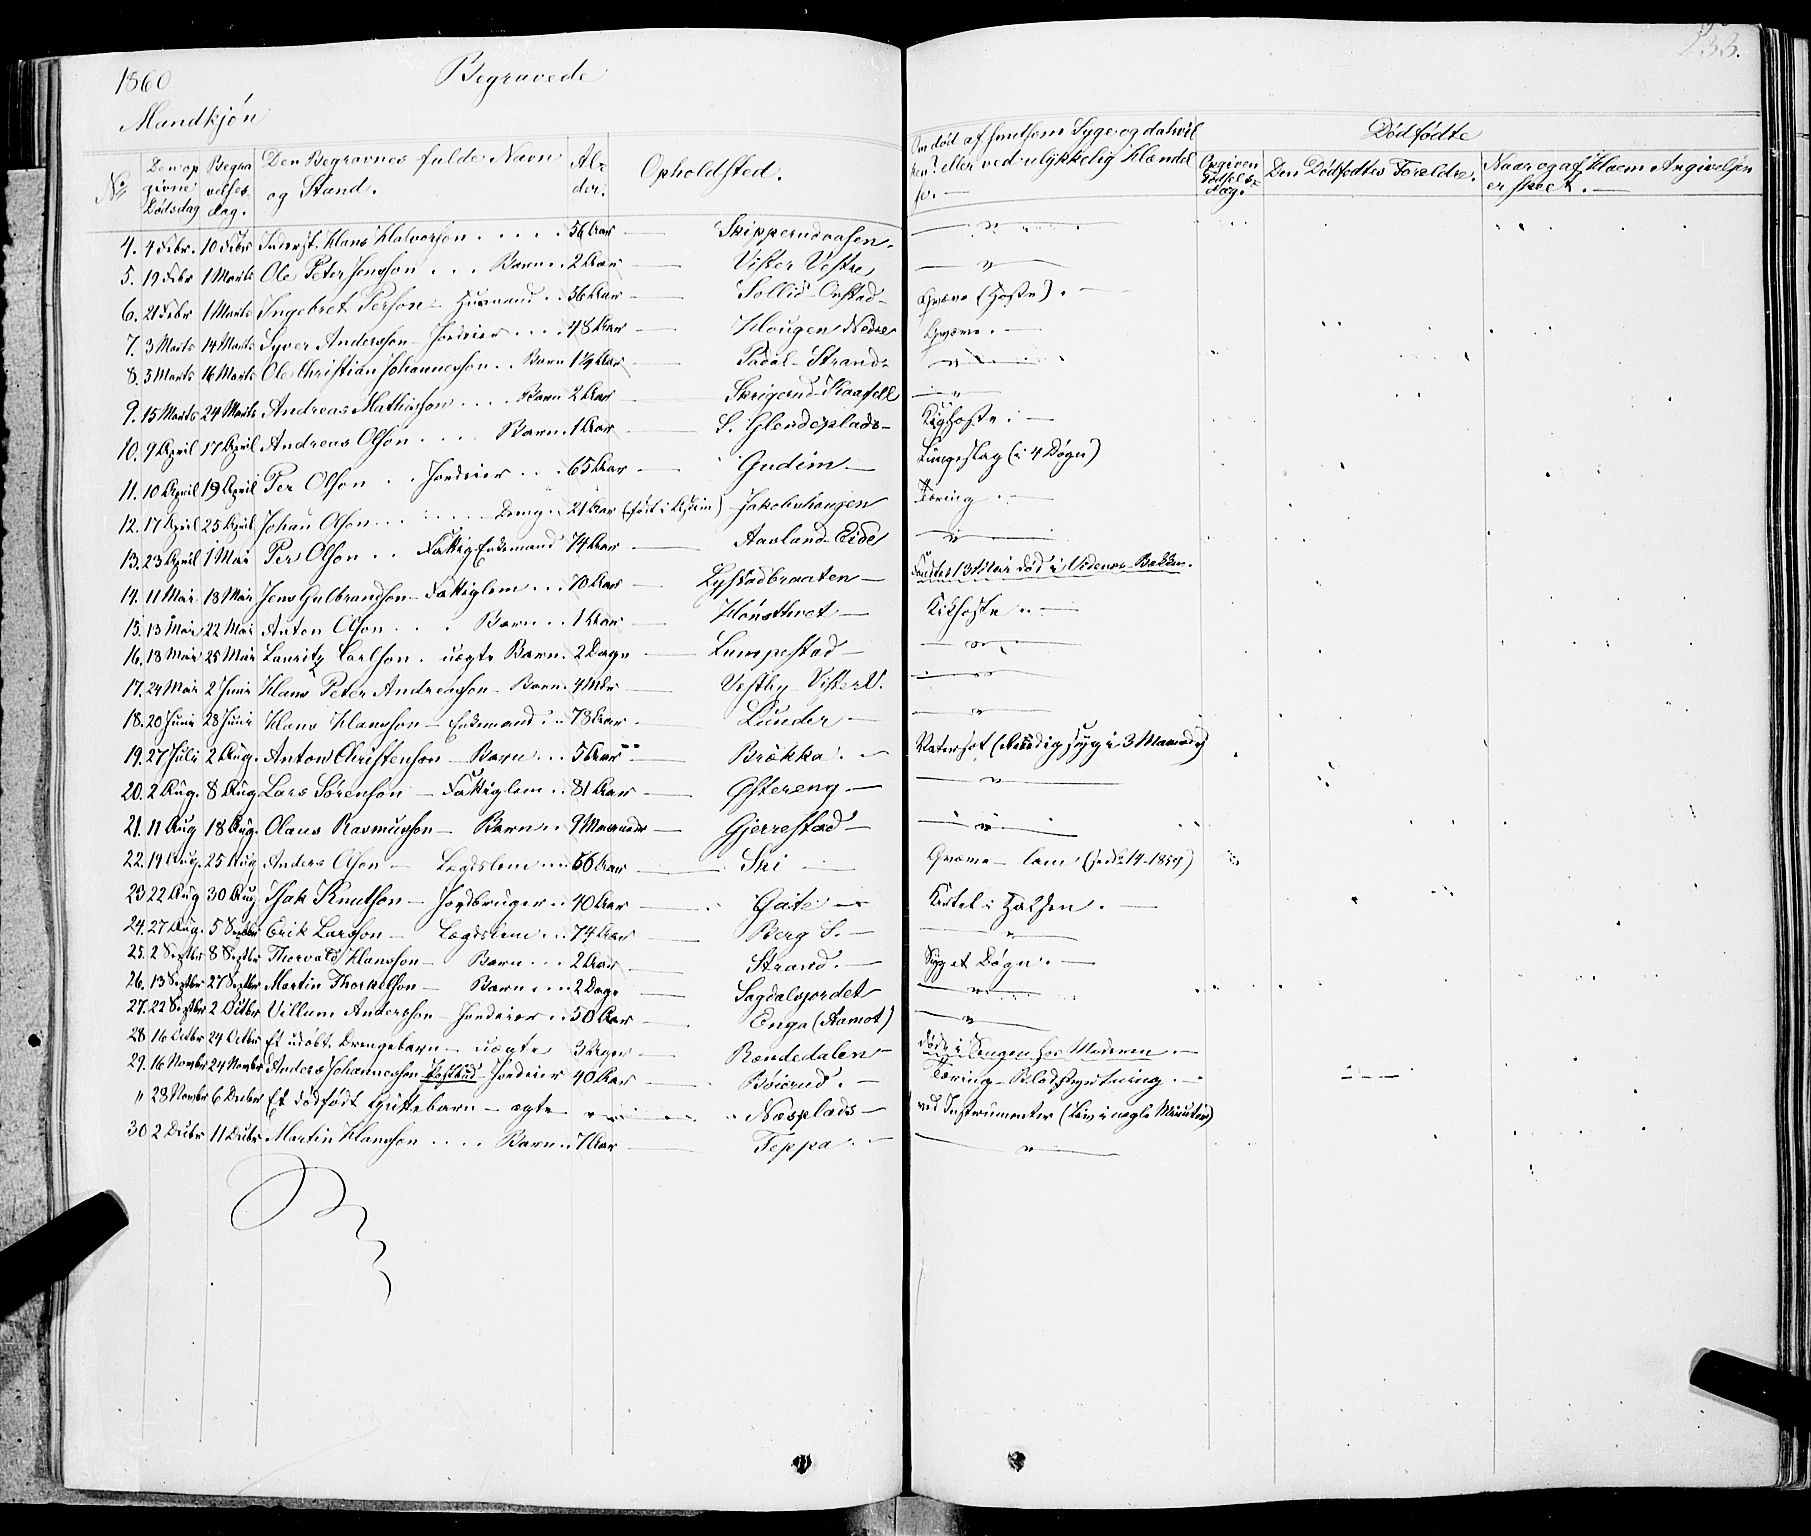 1860
Begravede
233.
Mandkjön
No
Den opgivne Dödsdag
Begravelses dag.
Den Begravnes fulde Navn og Stand.
Alder.
Opholdsted.
Om död af smitsom Syge og da hvilken? eller ved ulykkelig Hændelse. —
Opgiven Födselsdag.
Dödfödte
Den Dödfödtes Forældre.
Naar og af hvem Angivelsen er skeet. —
4. 4 Febr. 10 Febr Inderst. Hans Halvorson .... 56 Aar — Skipperudaasen. — " —
5. 19 Febr 1 Marts Ole Peter Jensson ... Barn .. 2 Aar — Vister Vestre — " —
6. 21 Febr 1 Marts Ingebret Person — Husmand .. 36 Aar — Sollid-Onstad — (Hoste). —
7. 3 Marts 14 Marts Syver Andersson — Jordeier ... 48 Aar — Hougen Nedre
8. 3 Marts 16 Marts Ole Christian Johannesson .. Barn 1 1/2 Aar — Strand — " —
9. 15 Marts 24 Marts Andreas Mathisson .... Barn 2 Aar — Skrigerud — " —
10. 9 April 17 April Andreas Olson .... Barn. 1 Aar — S. Glendeplads — Kighoste. —
11. 10 April 19 April Per Olson .. Jordeier ... 65 Aar — Gudim — Lungeslag (i 4 Dögn)
12. 17 April 25 April Johan Olson ... Dreng .. 21 Aar (föd i ) Jakobshougen Tæring. —
13. 23 April 1 Mai Per Olson .. Fattig Enkemand 74 Aar — Aavland-Eidet — " —
14. 11 Mai 18 Mai Jens Gulbrandson — Fattiglem ... 70 Aar — Lystadbraaten — 13 Mai död i
15. 13 Mai 22 Mai Anton Olson ... Barn .. 1 Aar — Hönsetvet — Kikhoste. —
16. 18 Mai 25 Mai Lauritz Carlson. uægte Barn. 2 Dage — Lumpestad — — " —
17. 24 Mai 2 Juni Hans Peter Andreasson — Barn. 4 Mdr — Vestby-Vister V. — " —
18. 20 Juni 28 Juni Hans Hansson — Enkemand .. 78 Aar — Lunder — — " —
19. 27 Juli 2 Aug. Anton Christenson — Barn ... 5 Aar — Brækka. — Vatersot ( syg i 3 Maaneder)
20. 2 Aug. 8 Aug Lars Sörenson — Fattiglem .. 81 Aar — Östereng — — " —
21. 11 Aug 18 Aug. Olaus Rasmusson — Barn .. 9 Maaneder — Gjerrestad — — " —
22. 19 Aug. 25 Aug Anders Olson — Lægdslem ... 66 Aar — Ski — lam
23 22 Aug 30 Aug Isak Knutson — Jordbruger .. 40 Aar — i Halsen. —
24. 27 Aug. 5 Septbr Erik Larsson — Lægdslem ... 74 Aar — Berg S. — — " —
25. 2 Septbr 8 Septbr Thorvald Hansson — Barn ... 2 Aar — Strand. — Syg et Dögn. —
26. 13 Septbr 27 Septbr Martin Thorkelson — Barn ... 2 Dage — Sagdalsjordet — " —
27. 22 Septbr 2 Octbr Villum Andersson — Jordeier .. 50 Aar — Enga (Aamot) — " —
28 16 Octbr 24 Octbr Et udöbt Drengebarn — uægte 3 Uger — Rendedalen — döde i Sengen hos Moderen. —
29. 16 Novbr 24 Novbr Anders Johannesson Postbud — Jordeier 40 Aar — Böierud. — Tæring — Blodspytning. —
" 28 Novbr 6 Decbr Et dödfödt Guttebarn — ægte — Næsplads — ved Instrumenter (Liv i nogle Minuter)
30 2 Decbr 11 Decbr Martin Hansson .... Barn .. 7 Aar — Teppa. — — " —